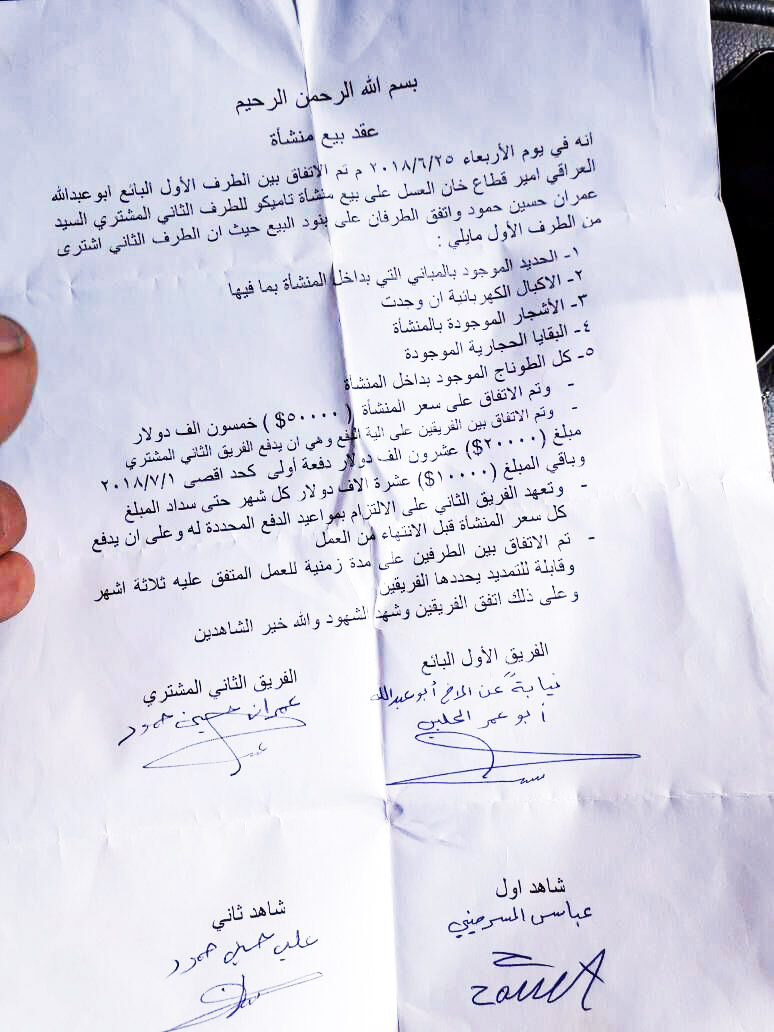 بسم الله الرحمن الرحيم
عقد بيع منشأة
انه في يوم الأربعاء ٢٠١٨/٦/٢٥ م تم الاتفاق بين الطرف الأول البائع ابو عبدالله
العراقي امير قطاع خان العسل على بيع منشاة تاميكو للطرف الثاني المشتري السيد
عمران حسين حمود واتفق الطرفان على بنود البيع حيث ان الطرف الثاني اشترى
من الطرف الأول مايلي :
١- الحديد الموجود بالمباني التي بداخل المنشأة بما فيها
٢- الاكبال الكهربائية ان وجدت
٣- الأشجار الموجودة بالمنشأة
٤- البقايا الحجارية الموجودة
٥- كل الطوناج الموجود بداخل المنشأة
- وتم الاتفاق على سعر المنشأة ( ٥٠٠٠٠$ ) خمسون الف دولار
- وتم الاتفاق بين الفريقين على الية الدفع وهي ان يدفع الفريق الثاني المشتري
مبلغ (٢٠٠٠٠$) عشرون الف دولار دفعة أولى كحد اقصى ٢٠١٨/٧/١
وباقي المبلغ (١٠٠٠٠$) عشرة الاف دولار كل شهر حتى سداد المبلغ
- وتعهد الفريق الثاني على الالتزام بمواعيد الدفع المحددة له وعلى ان يدفع
كل سعر المنشأة قبل الانتهاء من العمل
- تم الاتفاق بين الطرفين على مدة زمنية للعمل المتفق عليه ثلاثة اشهر
وقابلة للتمديد يحددها الفريقين
وعلى ذلك اتفق الفريقين وشهد الشهود والله خير الشاهدين
الفريق الأول البائع
نيابةً عن الاخ أبو عبدالله
أبو عمر الحلبي
الفريق الثاني المشتري
عمران حسين حمود
شاهد اول
عباس السرميني
شاهد ثاني
علي حسين حمود